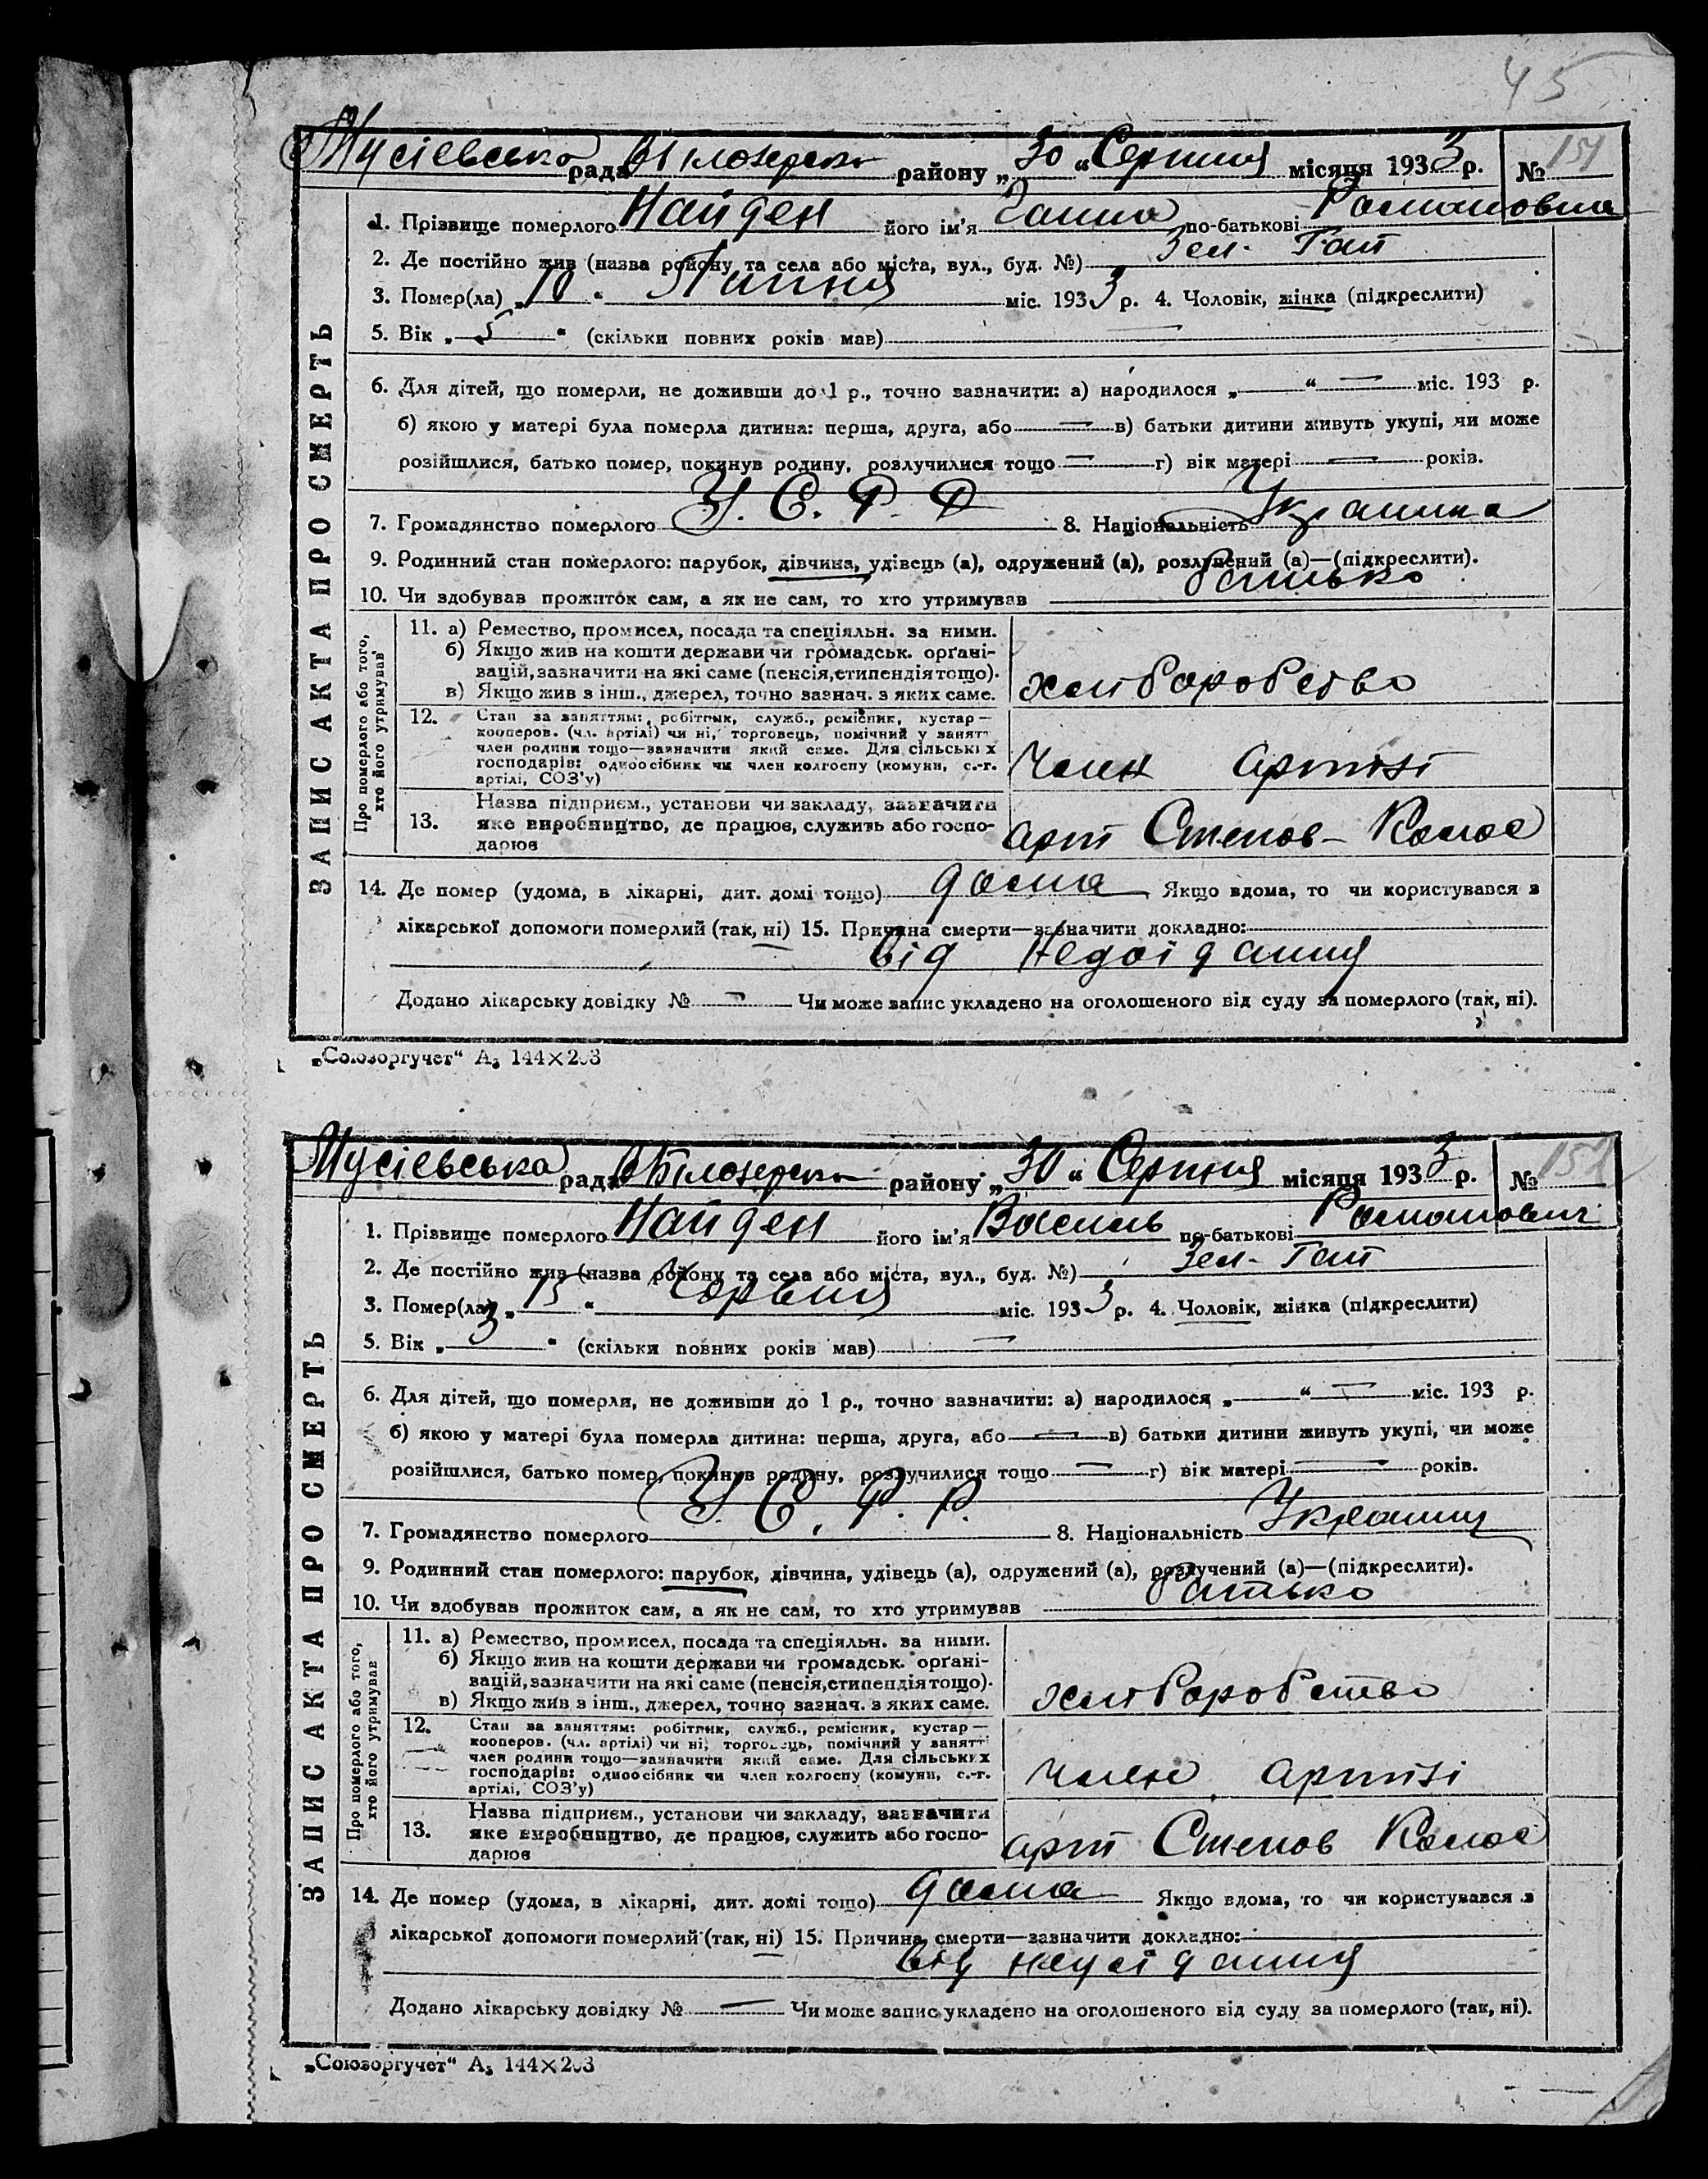 45
Мусіевська рада В Білозерськ району „30“ Серпня місяця 1933 р. № 151
ЗАПИС АКТА ПРО СМЕРТЬ
1. Прізвище померлого Найден його ім’я Ганна по-батькові Романовна
2. Де постійно жив (назва району та села або міста, вул., буд. №) Зел. Гай
3. Помер(ла) „10“ Липня міс. 1933 р. 4. Чоловік, жінка (підкреслити)
5. Вік „5“ (скільки повних років мав) —
6. Для дітей, що померли, не доживши до 1 р., точно зазначити: а) народилося „—“ — міс. 193 р.
б) якою у матері була померла дитина: перша, друга, або — в) батьки дитини живуть укупі, чи може
розійшлися, батько помер, покинув родину, розлучилися тощо — г) вік матері — років.
7. Громадянство померлого У. С. Р. Р. 8. Національність Українка
9. Родинний стан померлого: парубок, дівчина, удівець (а), одружений (а), розлучений (а)—(підкреслити).
10. Чи здобував прожиток сам, а як не сам, то хто утримував батько
Про померлого або того,
хто його утримував
11. а) Ремество, промисел, посада та спеціяльн. за ними.
б) Якщо жив на кошти держави чи громадськ. орґані-
зацій, зазначити на які саме (пенсія, стипендія тощо).
в) Якщо жив з інш., джерел, точно зазнач. з яких саме.
хліборобство
12. Стан за заняттям: робітник, служб., ремісник, кустар —
кооперов. (чл. артілі) чи ні, торговець, помічний у занятт
член родини тощо—зазначити який саме. Для сільських
господарів: одноосібник чи член колгоспу (комуни, с.-г.
артілі, СОЗ’у)
Член артілі
13. Назва підприєм., установи чи закладу, зазначити
яке виробництво, де працює, служить або госпо-
дарює
арт Степов-Колос
14. Де помер (удома, в лікарні, дит. домі тощо) дома Якщо вдома, то чи користувався з
лікарської допомоги померлий (так, ні) 15. Причина смерти—зазначити докладно:
від недоїдання
Додано лікарську довідку № — Чи може запис укладено на оголошеного від суду за померлого (так, ні).
„Союзоргучет“ А₅ 144×203
Мусіевська рада В Білозерськ району „30“ Серпня місяця 1933 р. № 152
ЗАПИС АКТА ПРО СМЕРТЬ
1. Прізвище померлого Найден його ім’я Василь по-батькові Романович
2. Де постійно жив (назва району та села або міста, вул., буд. №) Зел. Гай
3. Помер(ла) „15“ Червня міс. 1933 р. 4. Чоловік, жінка (підкреслити)
5. Вік „3“ (скільки повних років мав) —
6. Для дітей, що померли, не доживши до 1 р., точно зазначити: а) народилося „—“ — міс. 193 р.
б) якою у матері була померла дитина: перша, друга, або — в) батьки дитини живуть укупі, чи може
розійшлися, батько помер, покинув родину, розлучилися тощо — г) вік матері — років.
7. Громадянство померлого У. С. Р. Р. 8. Національність Українц
9. Родинний стан померлого: парубок, дівчина, удівець (а), одружений (а), розлучений (а)—(підкреслити).
10. Чи здобував прожиток сам, а як не сам, то хто утримував батько
Про померлого або того,
хто його утримував
11. а) Ремество, промисел, посада та спеціяльн. за ними.
б) Якщо жив на кошти держави чи громадськ. орґані-
зацій, зазначити на які саме (пенсія, стипендія тощо).
в) Якщо жив з інш., джерел, точно зазнач. з яких саме.
хліборобство
12. Стан за заняттям: робітник, служб., ремісник, кустар —
кооперов. (чл. артілі) чи ні, торговець, помічний у занятті
член родини тощо—зазначити який саме. Для сільських
господарів: одноосібник чи член колгоспу (комуни, с.-г.
артілі, СОЗ’у)
член артілі
13. Назва підприєм., установи чи закладу, зазначити
яке виробництво, де працює, служить або госпо-
дарює
арт Степов Колос
14. Де помер (удома, в лікарні, дит. домі тощо) дома Якщо вдома, то чи користувався з
лікарської допомоги померлий (так, ні) 15. Причина смерти—зазначити докладно:
від недоїдання
Додано лікарську довідку № — Чи може запис укладено на оголошеного від суду за померлого (так, ні).
„Союзоргучет“ А₅ 144×203